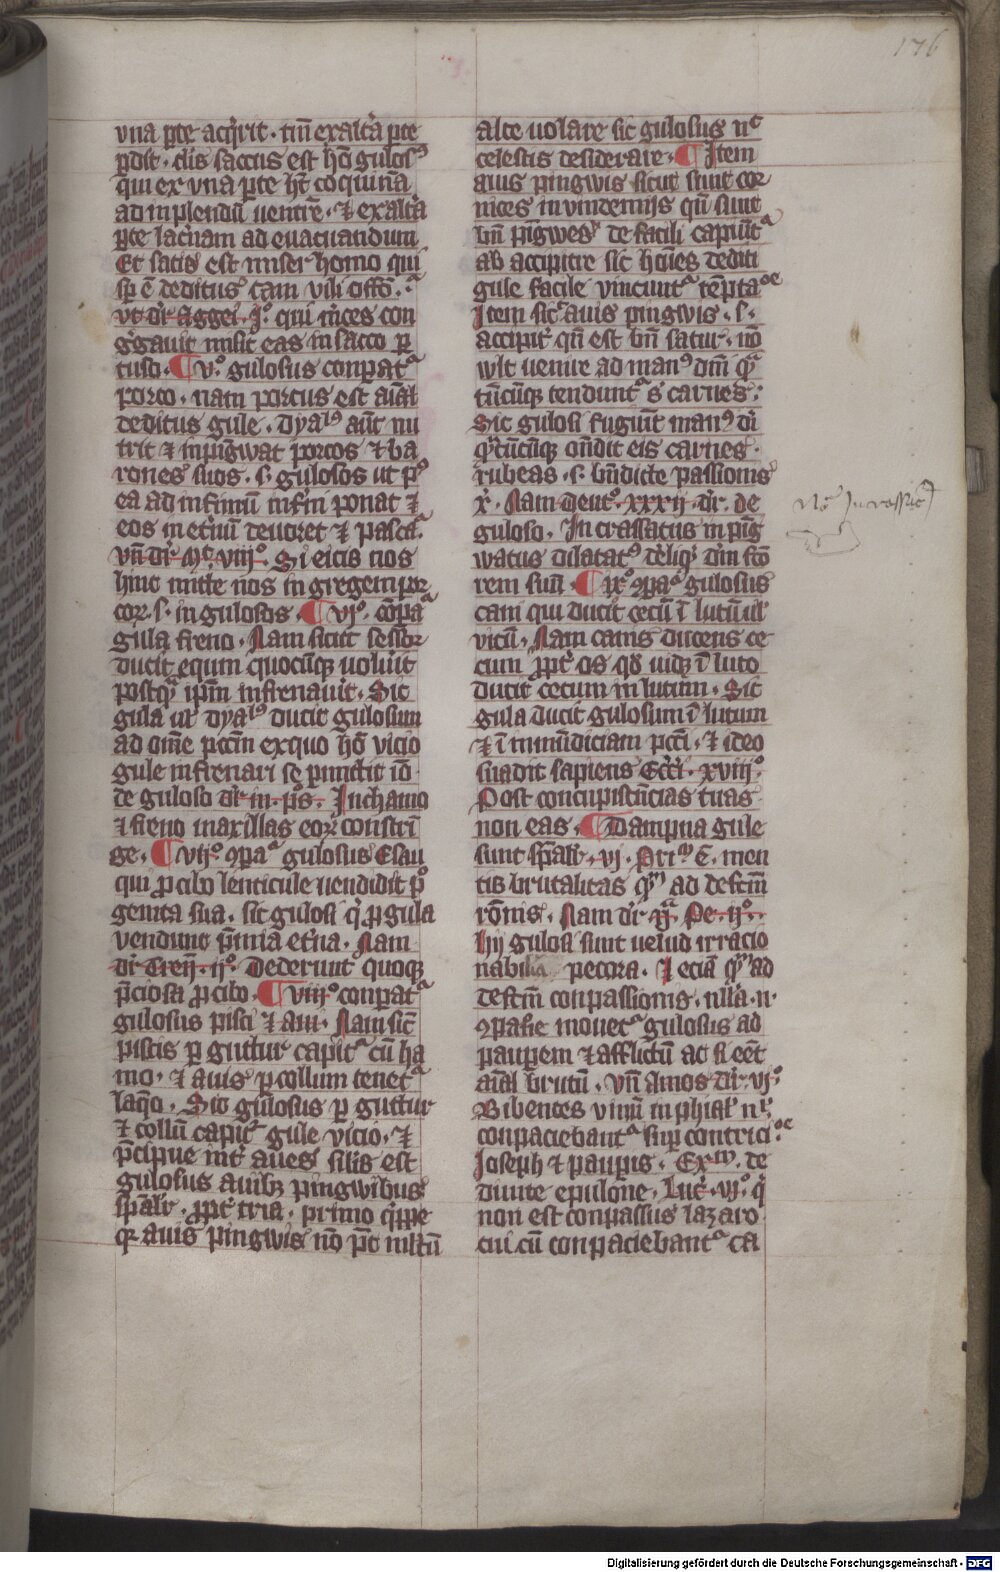 176
vna ꝑte acq̇rit · tm̄ exalt̾a ꝑte
ꝑdit · Et̾is saccus est hō gulosꝰ
qui ex vna ꝑte hꝫ coquinā
ad inplendū uentrē · ⁊ exalt̾a
ꝑte latrinam ad euacuandum
Et satis est miser homo qui
sꝑ ē deditus tam vili offō ·
vt dr̄ Aggei · Jº qui m̾ces con
g̾gauit misit eas in saccū ꝑ
tusū · ¶ vº gulosus conparat᷑
porco · nam porcus est aīal
deditus gule · dyalꝰ aūt nu
trit ⁊ inpīgwat porcos ⁊ ba
rones suos · s · gulosos ut pꝰ
ea ad infimū infīni ponat ⁊
eos in et̾nū deuoret ⁊ pascat᷑
vn̄ dr̄ Mt̾ viijº · Si eicis nos
hinc mitte nos in gregem por
cor̄ · s · in gulosos · ¶ vjº · cōpat᷑
gula freno · Nam sicut sessor
ducit equm quocūqꝫ uoluīt
postqᷓ ip̄m infrenauīt · Sic
gula ul̄ dyalꝰ ducit gulosum
ad om̄e pctm̄ ex quo hō vicio
gule infrenari se ꝑmittit iō
de guloso dr̄ in · ps̄ · In chamo
⁊ freno maxillas eor̄ constrī
ge · ¶ vijº ꝯpat᷑ gulosus Esau
qui ꝓ cibo lenticule uendidit pͦ
genita sua · sic gulosi q̇ ꝓ gula
vendunt p̄mia et̾na · Nam
dr̄ Tren̄ · jº · Dederunt quoqꝫ
p̄ciosa ꝓ cibo · ¶ viijº conparat᷑
gulosus pisci ⁊ aui · Nam sic̄
piscis ꝑ guttur capit᷑ cū ha
mo · ⁊ auis ꝑ collum tenet᷑
laqo · Sic gulosus ꝑ guttur
⁊ collū capit᷑ gule vicio · ⁊
p̄cipue int̾ aues sīlis est
gulosus auibꝫ pingwibus
sp̄alr̄ · ꝓpt̾ tria · primo q̇ppe
qꝛ auis pingwis nō pōt ml̄tū
alte uolare sic gulosus nᵉᶜ
celestis desiderare · ¶ Item
auis pingwis sicut sunt cor
nices in vindemijs qn̄ sunt
bn̄ pīgwes de facili capiūt᷑
ab accipitre sic hoīes dediti
gule facile vincunt᷑ tēptaᵒᵉ
Item sic̄ auis pingwis · s ·
accipit̾ qn̄ est bn̄ satur · nō
wlt uenire ad manꝰ dn̄i qᷓ
tūcūqꝫ tendunt᷑ s carnes ·
Sic gulosi fugiūt manꝰ di
qᷓtūcūqꝫ on̄dit eis carnes ·
rubeas · s · bn̄dicte passionis
xͥ · Nam Deut̾º · xxxij · dr̄ · de
guloso · Incrassatus inpīg
watus dilatatꝰ dēliq̄t dm̄ fcō
rem suū · ¶ ixº ꝯpat᷑ gulosus
cani qui ducit cecū ī lutū ul̄
vicū · Nam canis ducens ce
cum ꝓpt̾ os qd̾ uidꝫ ī luto
ducit cecum in lutum · Sic
gula ducit gulosum ī lutum
⁊ ī inmūdiciam pcc̄i · ⁊ ideo
suadit sapiens Ecc̄i · xviijº
Post concupiscēncias tuas
non eas · ¶ Dampna gule
sunt sp̄alr̄ · vj · Primᵐ ē · men
tis brutalitas qᷓᵐ ad defcm̄
rōnis · Nam dr̄ ijᷓ Pe · ijº ·
hij gulosi sunt uelud irracio
nabilia pecora · Jeciā qᷓᵐ ad
defcm̄ conpassionis · nll̄a · n̄
ꝯpassione mouet᷑ gulosus ad
pauꝑem ⁊ afflictū ac si eēt
aīal brutū · vn̄ Amos dr̄ · vjº
Bibentes vinū in phial̾ nᶜʰ
conpaciebant᷑ suꝑ contriciᵒᵉ
Joseph ⁊ pauꝑis · Exᵐ · de
diuite epulone · Luc̾ · vjº q̇
non est conpassus lazaro
cui cū conpaciebant᷑ ca
Digitalisierung gefördert durch die Deutsche Forschungsgemeinschaft - DFG